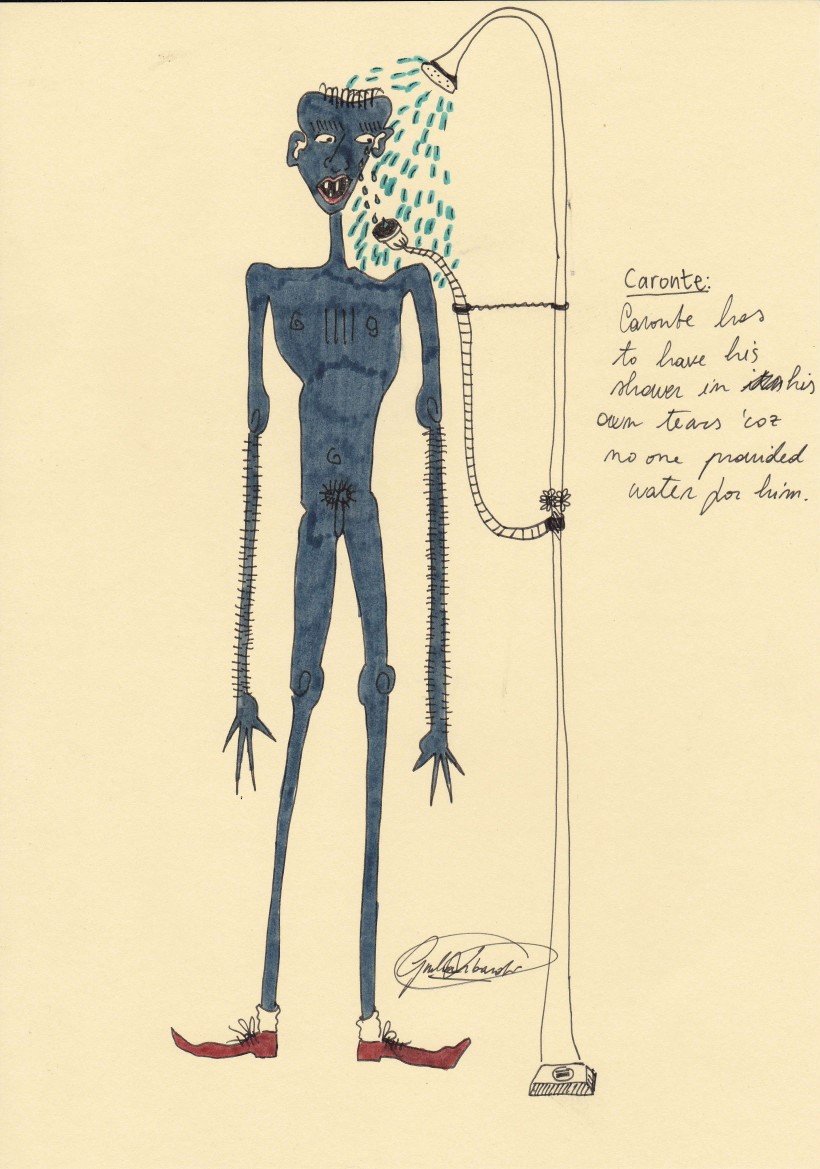 Caronte:
Caronte has
to have his
shower in his
own tears 'coz
no one provided
water for him.